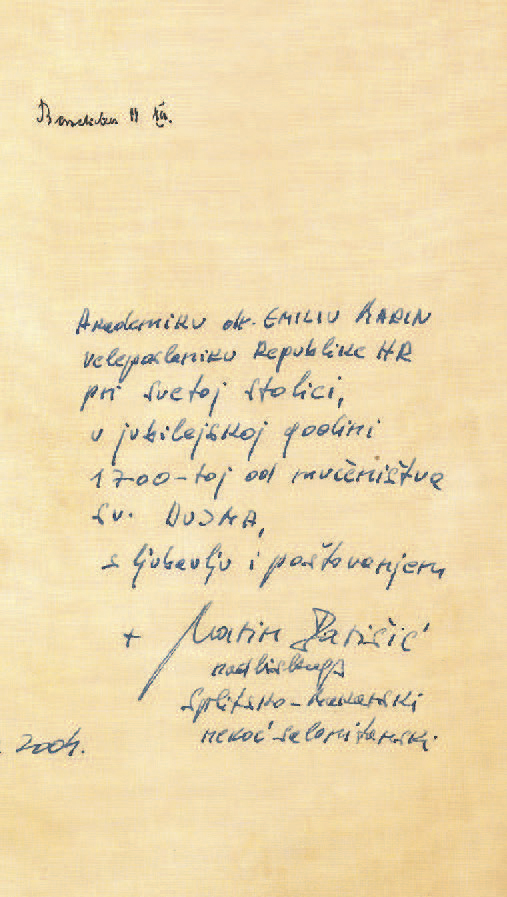 II
Akademiku dr. EMILIU MARIN
veleposlaniku Republike HR
pri svetoj stolici,
u jubilejskoj godini
1700-toj od mučeništva
sv. DUJMA,
s ljubavlju i poštovanjem
+ Marin Barišić
nadbiskup
splitsko-makarski
nekoć salonitanski
2004.